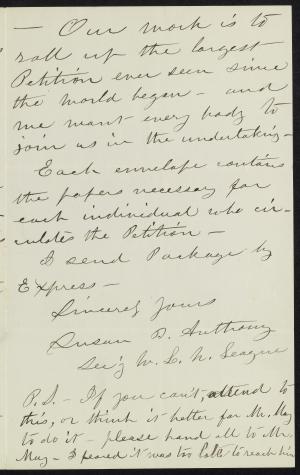 — Our work is to
roll up the largest
Petition ever seen since
the world began — and
we want every body to
join us in the undertaking —
Each envelope contains
the papers necessary for
each individual who cir-
culates the Petition —
I send Package by
Express —
Sincerely Yours
Susan B. Anthony
Sec'y W. L. N. League
P.S. — If you can't, attend to
this, or think it better for Mr. May
to do it — please hand all to Mr.
May — I feared it was too late to reach him